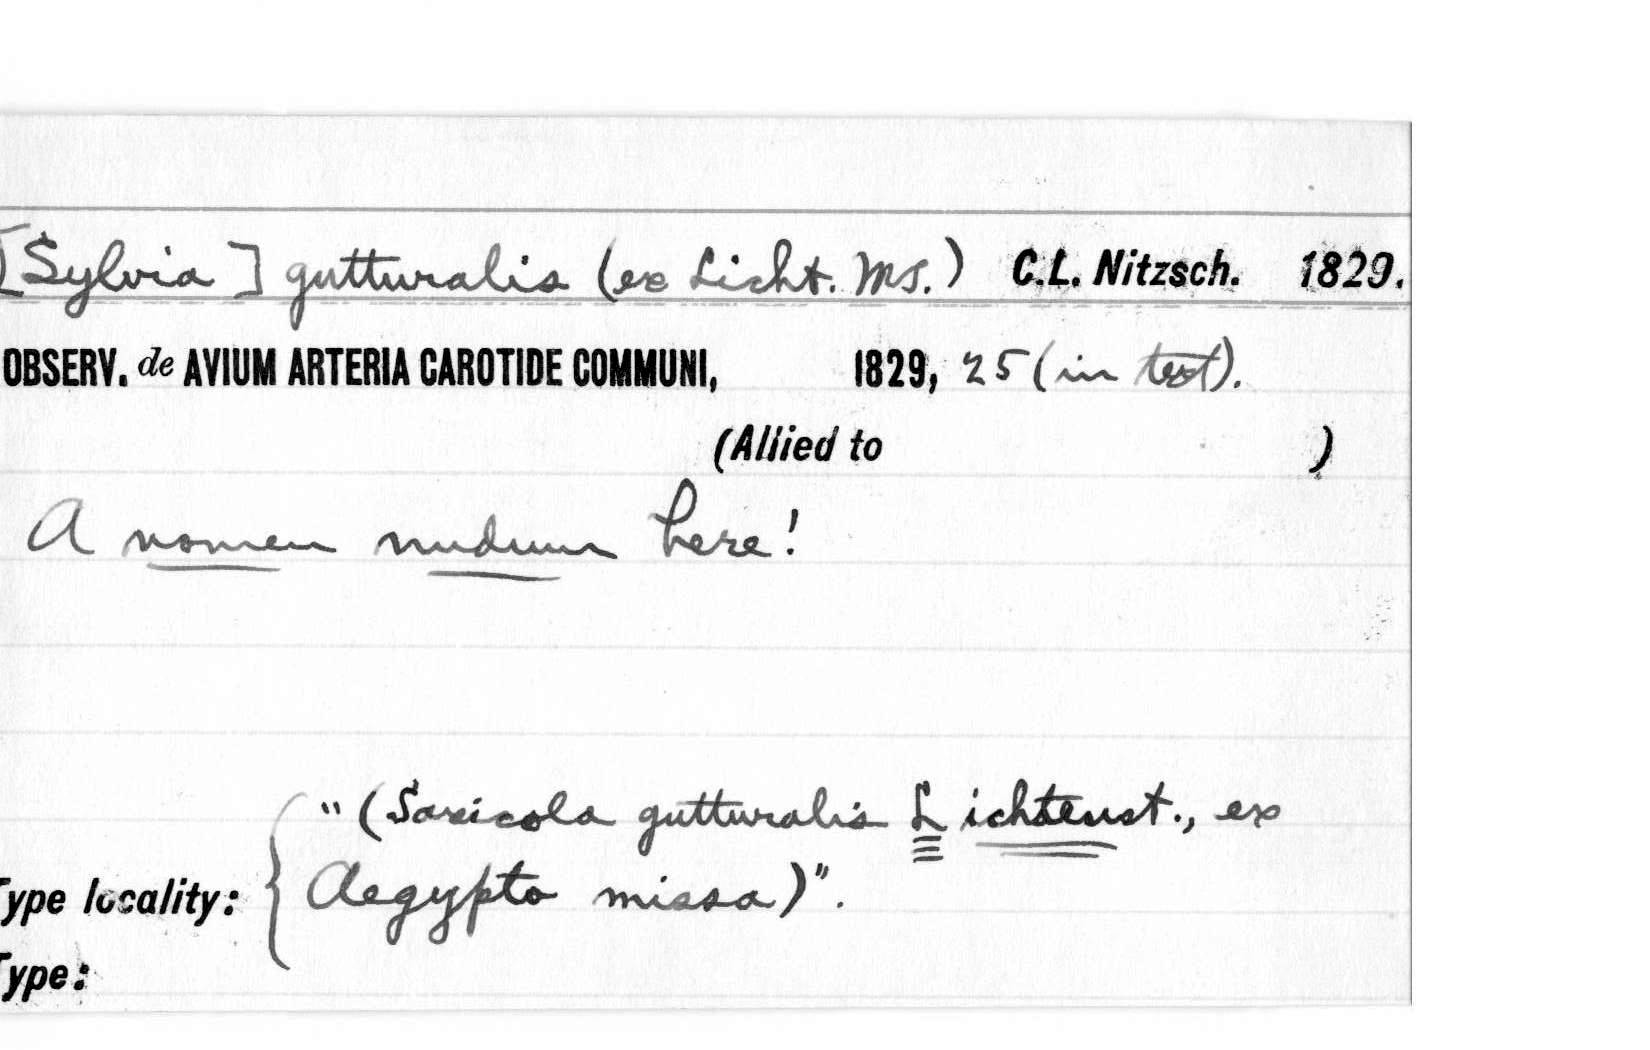 [Sylvia] gutturalis (ex Licht. MS.) C.L. Nitzsch. 1829.
OBSERV. de AVIUM ARTERIA CAROTIDE COMMUNI, 1829, 25 (in text).
(Allied to )
A nomen nudum here!
"(Saxicola gutturalis Lichtenst., ex
Type locality: { Aegypto missa)".
Type: